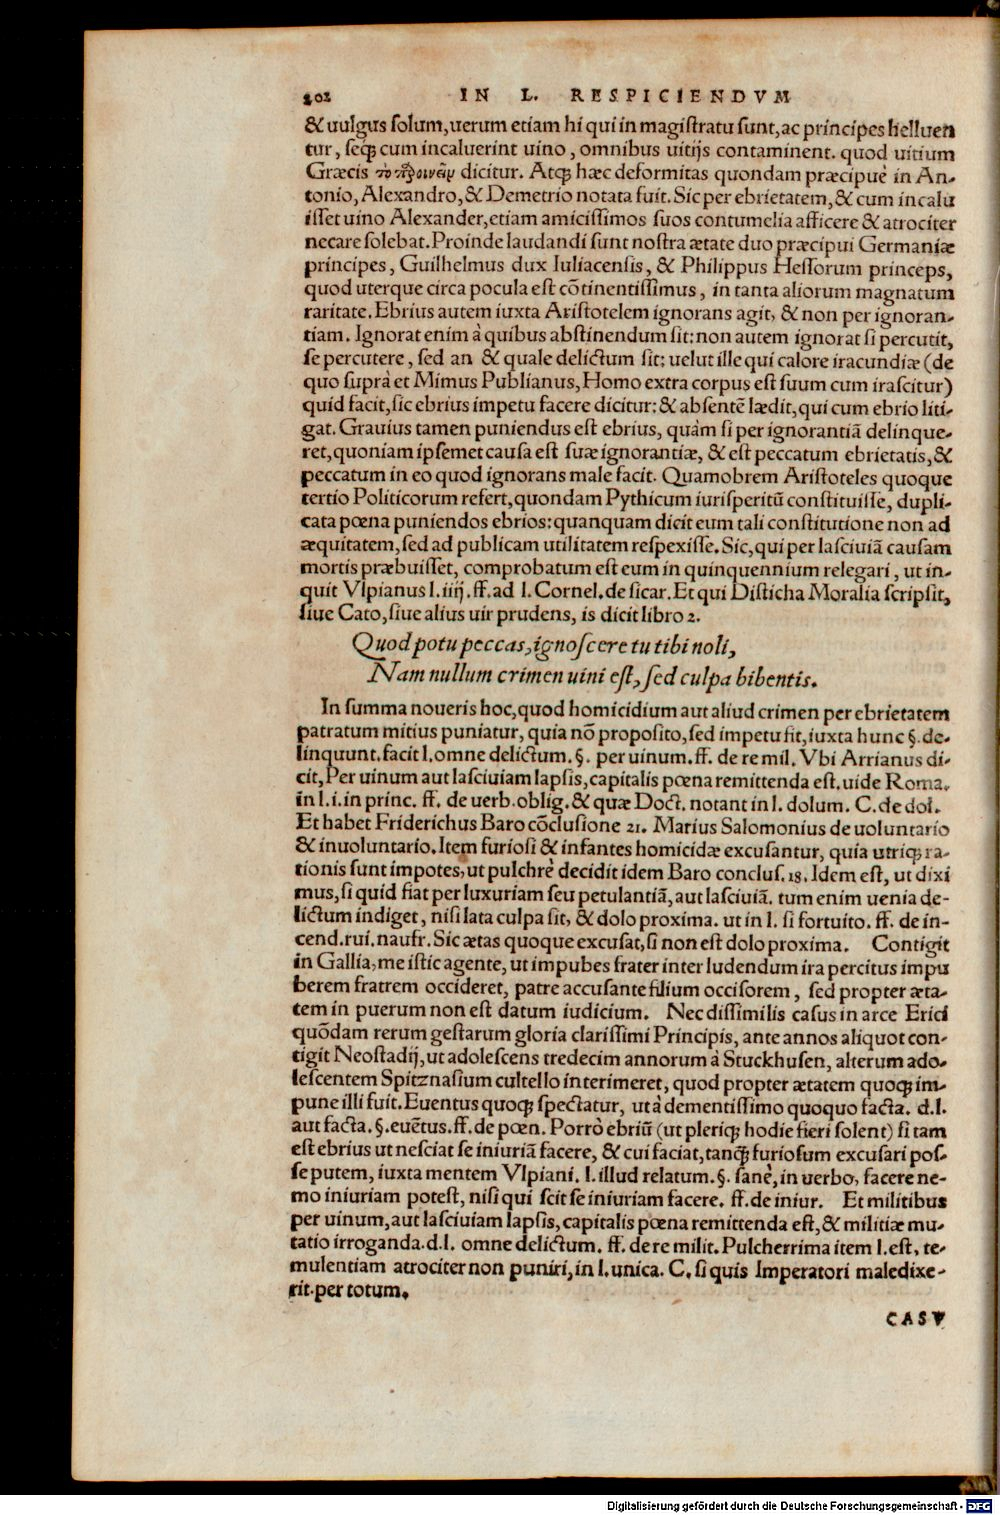 202 IN L. RESPICIENDVM
& uulgus ſolum, uerum etiam hi qui in magiſtratu ſunt, ac principes helluen
tur, ſeq́ꝫ cum incaluerint uino, omnibus uitijs contaminent. quod uitium
Græcis dicitur. Atqꝫ hæc deformitas quondam præcipuè in An-
tonio, Alexandro, & Demetrio notata fuit. Sic per ebrietatem, & cum incalu
iſſet uino Alexander, etiam amiciſſimos ſuos contumelia afficere & atrociter
necare ſolebat. Proinde laudandi ſunt noſtra ætate duo præcipui Germaniæ
principes, Guilhelmus dux Iuliacenſis, & Philippus Heſſorum princeps,
quod uterque circa pocula eſt cõtinentiſſimus, in tanta aliorum magnatum
raritate. Ebrius autem iuxta Ariſtotelem ignorans agit, & non per ignoran-
tiam. Ignorat enim à quibus abſtinendum ſit: non autem ignorat ſi percutit,
ſe percutere, ſed an & quale delictum ſit: uelut ille qui calore iracundiæ (de
quo ſuprà et Mimus Publianus, Homo extra corpus eſt ſuum cum iraſcitur)
quid facit, ſic ebrius impetu facere dicitur: & abſentẽ lædit, qui cum ebrio liti-
gat. Grauius tamen puniendus eſt ebrius, quàm ſi per ignorantiã delinque-
ret, quoniam ipſemet cauſa eſt ſuæ ignorantiæ, & eſt peccatum ebrietatis, &
peccatum in eo quod ignorans male facit. Quamobrem Ariſtoteles quoque
tertio Politicorum refert, quondam Pythicum iuriſperitũ conſtituiſſe, dupli-
cata pœna puniendos ebrios: quanquam dicit eum tali conſtitutione non ad
æquitatem, ſed ad publicam utilitatem reſpexiſſe. Sic, qui per laſciuiã cauſam
mortis præbuiſſet, comprobatum eſt eum in quinquennium relegari, ut in-
quit Vlpianus l. iiij. ff. ad l. Cornel. de ſicar. Et qui Diſticha Moralia ſcripſit,
ſiue Cato, ſiue alius uir prudens, is dicit libro 2.
Quod potu peccas, ignoſcere tu tibi noli,
Nam nullum crimen uini eſt, ſed culpa bibentis.
In ſumma noueris hoc, quod homicidium aut aliud crimen per ebrietatem
patratum mitius puniatur, quia nõ propoſito, ſed impetu fit, iuxta hunc §. de-
linquunt. facit l. omne delictum. §. per uinum. ff. de re mil. Vbi Arrianus di-
cit, Per uinum aut laſciuiam lapſis, capitalis pœna remittenda eſt. uide Roma.
in l. i. in princ. ff. de uerb. oblig. & quæ Doct. notant in l. dolum. C. de dol.
Et habet Friderichus Baro cõcluſione 21. Marius Salomonius de uoluntario
& inuoluntario. Item furioſi & infantes homicidæ excuſantur, quia utriqꝫ ra-
tionis ſunt impotes, ut pulchrè decidit idem Baro concluſ. 18. Idem eſt, ut dixi
mus, ſi quid fiat per luxuriam ſeu petulantiã, aut laſciuiã. tum enim uenia de-
lictum indiget, niſi lata culpa ſit, & dolo proxima. ut in l. ſi fortuito. ff. de in-
cend. rui. naufr. Sic ætas quoque excuſat, ſi non eſt dolo proxima. Contigit
in Gallia, me iſtic agente, ut impubes frater inter ludendum ira percitus impu
berem fratrem occideret, patre accuſante filium occiſorem, ſed propter æta-
tem in puerum non eſt datum iudicium. Nec diſſimilis caſus in arce Erici
quõdam rerum geſtarum gloria clariſſimi Principis, ante annos aliquot con-
tigit Neoſtadij, ut adoleſcens tredecim annorum à Stuckhuſen, alterum ado-
leſcentem Spitznaſium cultello interimeret, quod propter ætatem quoqꝫ im-
pune illi fuit. Euentus quoqꝫ ſpectatur, ut à dementiſſimo quoquo facta. d. l.
aut facta. §. euẽtus. ff. de pœn. Porrò ebriũ (ut pleriqꝫ hodie fieri ſolent) ſi tam
eſt ebrius ut neſciat ſe iniuriã facere, & cui faciat, tanq̃ꝫ furioſum excuſari poſ-
ſe putem, iuxta mentem Vlpiani. l. illud relatum. §. ſanè, in uerbo, facere ne-
mo iniuriam poteſt, niſi qui ſcit ſe iniuriam facere. ff. de iniur. Et militibus
per uinum, aut laſciuiam lapſis, capitalis pœna remittenda eſt, & militiæ mu-
tatio irroganda. d. l. omne delictum. ff. de re milit. Pulcherrima item l. eſt, te-
mulentiam atrociter non puniri, in l. unica. C. ſi quis Imperatori maledixe-
rit. per totum.
CASV
Digitalisierung gefördert durch die Deutsche Forschungsgemeinschaft - DFG